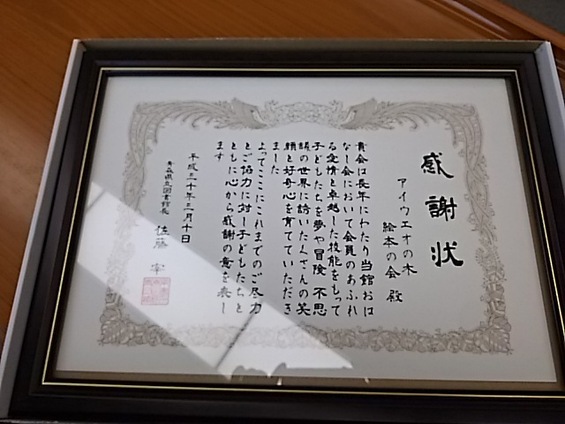 感謝状
アイウエオの木
絵本の会 殿
貴会は長年にわたり当館おは
なし会において会員のあふれ
る愛情と卓越した技能をもって
子どもたちを夢や冒険 不思
議の世界に誘いたくさんの笑
顔と好奇心を育てていただき
ました
よってここにこれまでのご尽力
とご協力に対し子どもたちと
ともに心から感謝の意を表し
ます
平成三十年三月十日
青森県立図書館長 佐藤 宰